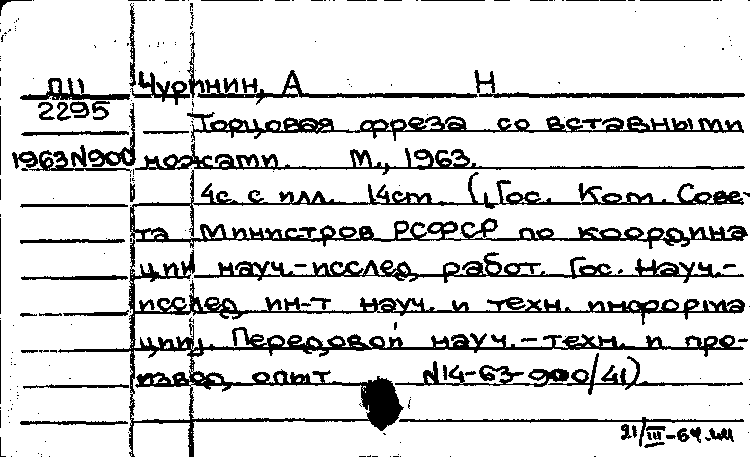 П11 Чуринин, А Н
2295 Торцовая фреза со вставными
1963N900 ножами. М., 1963.
4с. с илл. 14cm. (Гос. Ком. Сове-
та Министров РСФСР по координа
ции науч.-исслед. работ. Гос. Науч.-
исслед. ин-т науч. и техн. информа
ции. Передовой науч.-техн. и про-
извод. опыт N14-63-900/41).
21/III-64